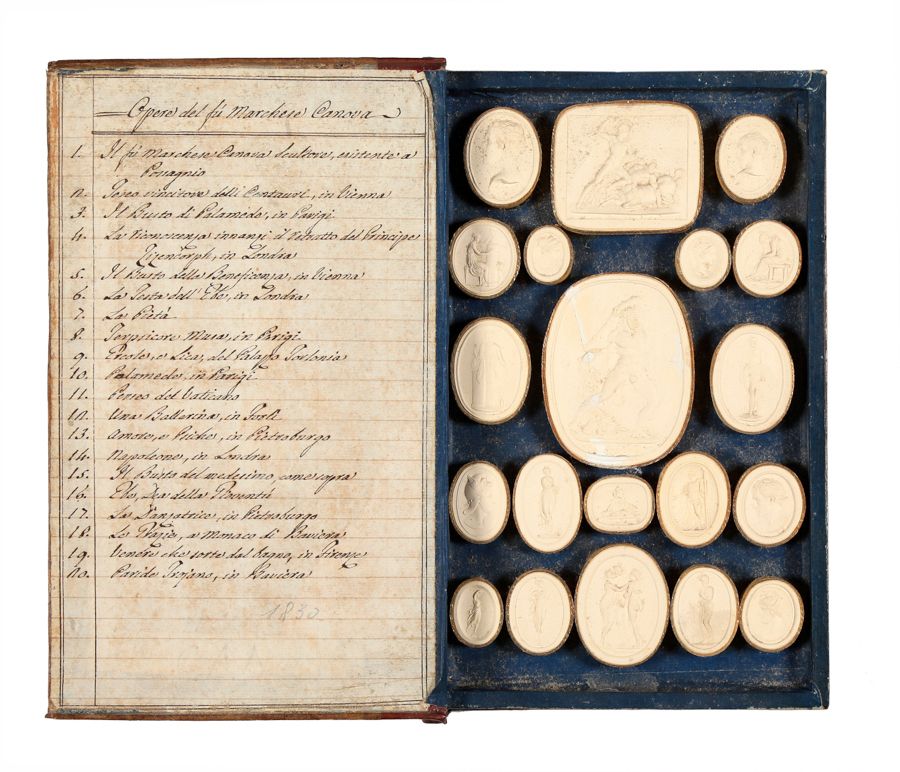 Opere del fù Marchese Canova
1. Il fù Marchese Canova Scultore, esistente a
Possagnio
2. Teseo vincitore delli Centauri, in Vienna
3. Il Busto di Palamede, in Parigi
4. La Riconoscenza innanzi il ritratto del Principe
in Londra
5. Il Busto della Beneficenza, in Vienna
6. La Testa dell' Ebe, in Londra
7. La Pietà
8. Terpsicore Musa, in Parigi
9. Ercole, e Lica, del Palazzo Torlonia
10. Palamede, in Parigi
11. Perseo del Vaticano
12. Una Ballerina, in Forlì
13. Amore, e Psiche, in Pietroburgo
14. Napoleone, in Londra
15. Il Busto del medesimo, come sopra
16. Ebe, Dea della Gioventù
17. La Danzatrice, in Pietroburgo
18. Le Grazie, a Monaco di Baviera
19. Venere che sorte dal bagno, in Firenze
20. Paride Trojano, in Baviera
1830